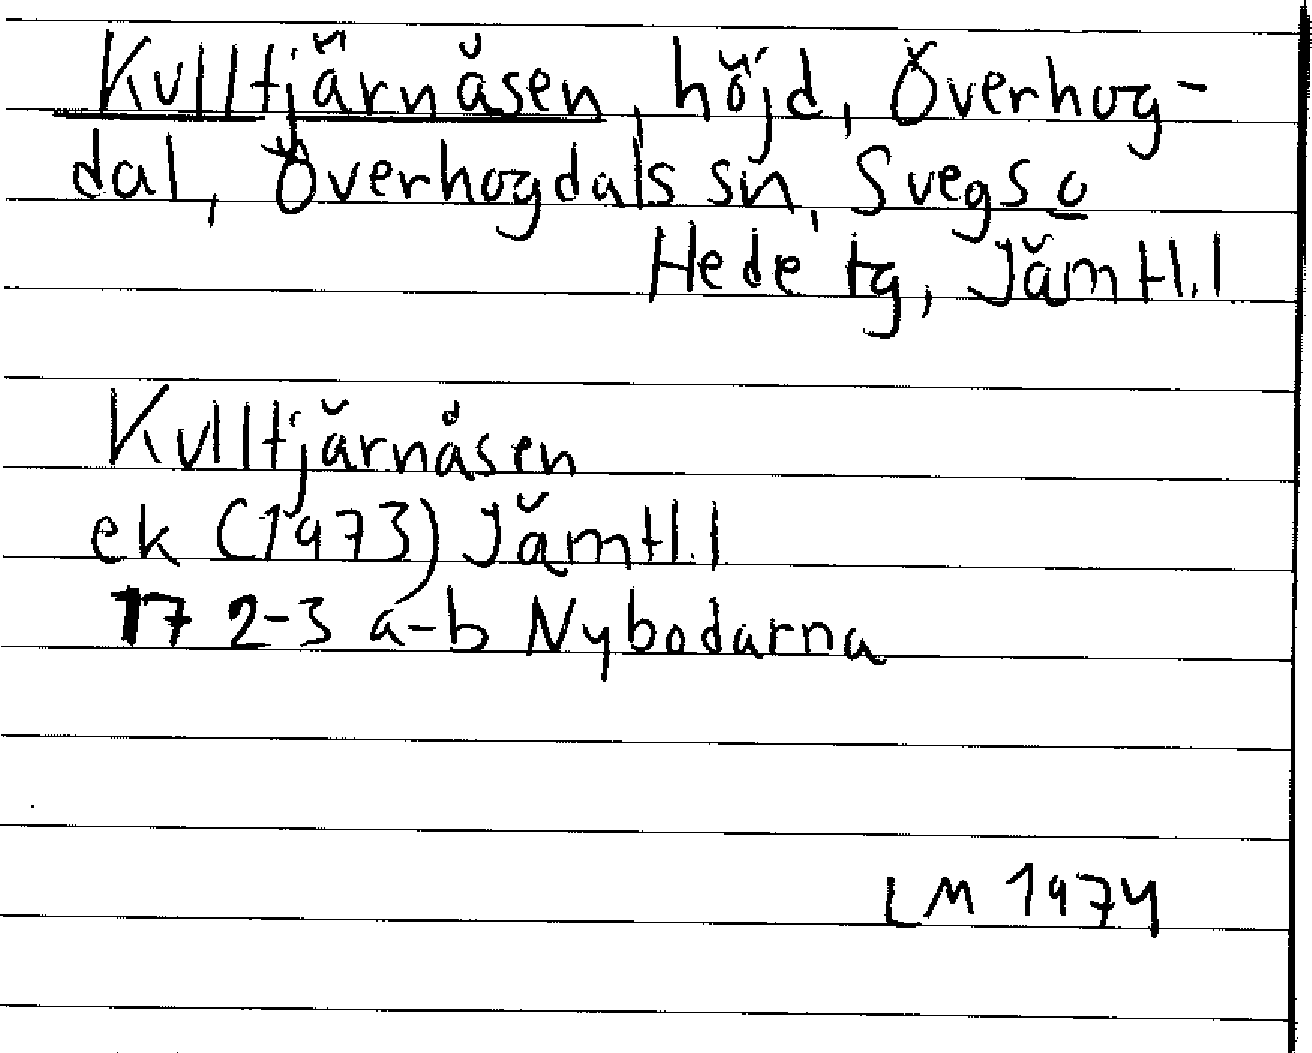 Kulltjärnåsen, höjd, Överhog-
dal, Överhogdals sn, Svegs o
Hede tg, Jämtl.l
Kulltjärnåsen
ek (1973) Jämtl.l
17 2-3 a-b Nybodarna
LM 1974